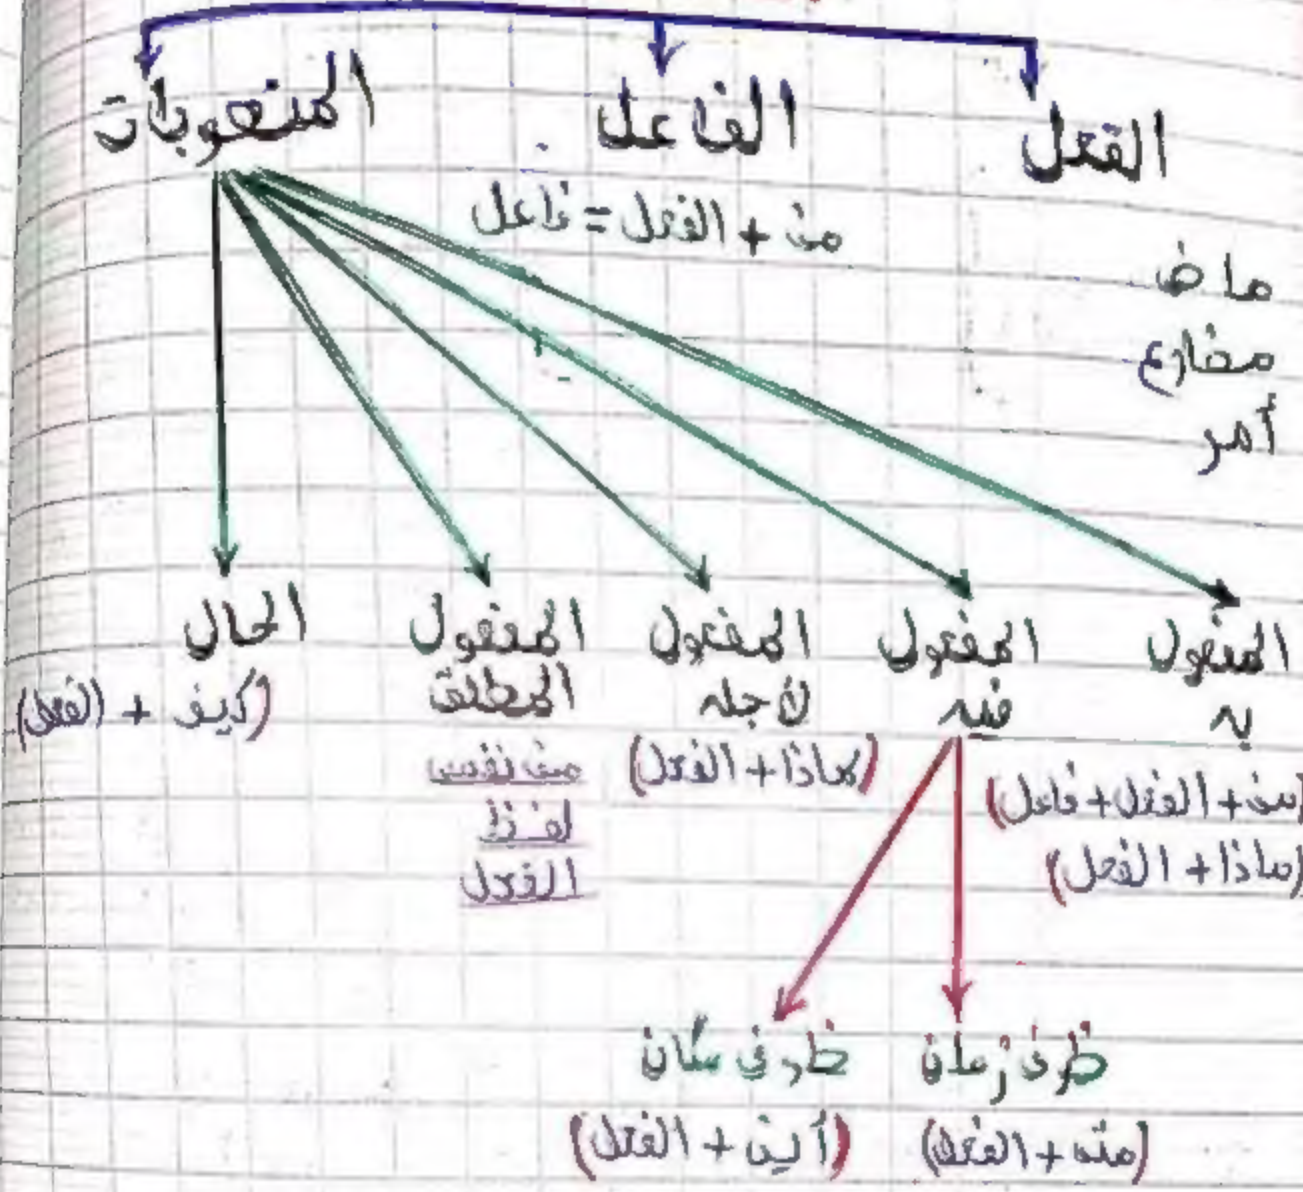 الفعل
الفاعل
المنصوبات
ماض
مضارع
أمر
من + الفعل = فاعل
المفعول به
(من + الفعل + فاعل)
(ماذا + الفعل)
المفعول فيه
المفعول لأجله
(لماذا + الفعل)
المفعول المطلق
من نفس
لفظ
الفعل
الحال
(كيف + الفعل)
ظرف زمان
(متى + الفعل)
ظرف مكان
(أين + الفعل)